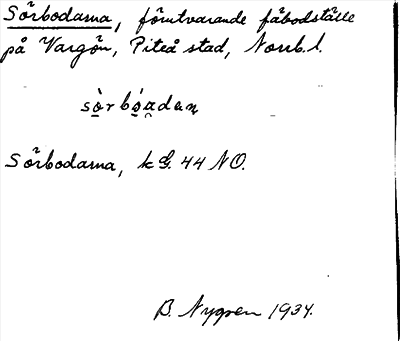 Sörbodarna, förutvarande fäbodställe
på Vargön, Piteå stad, Norrb. l.
Sörbodarna, k G. 44 NO.
B. Nygren 1934.